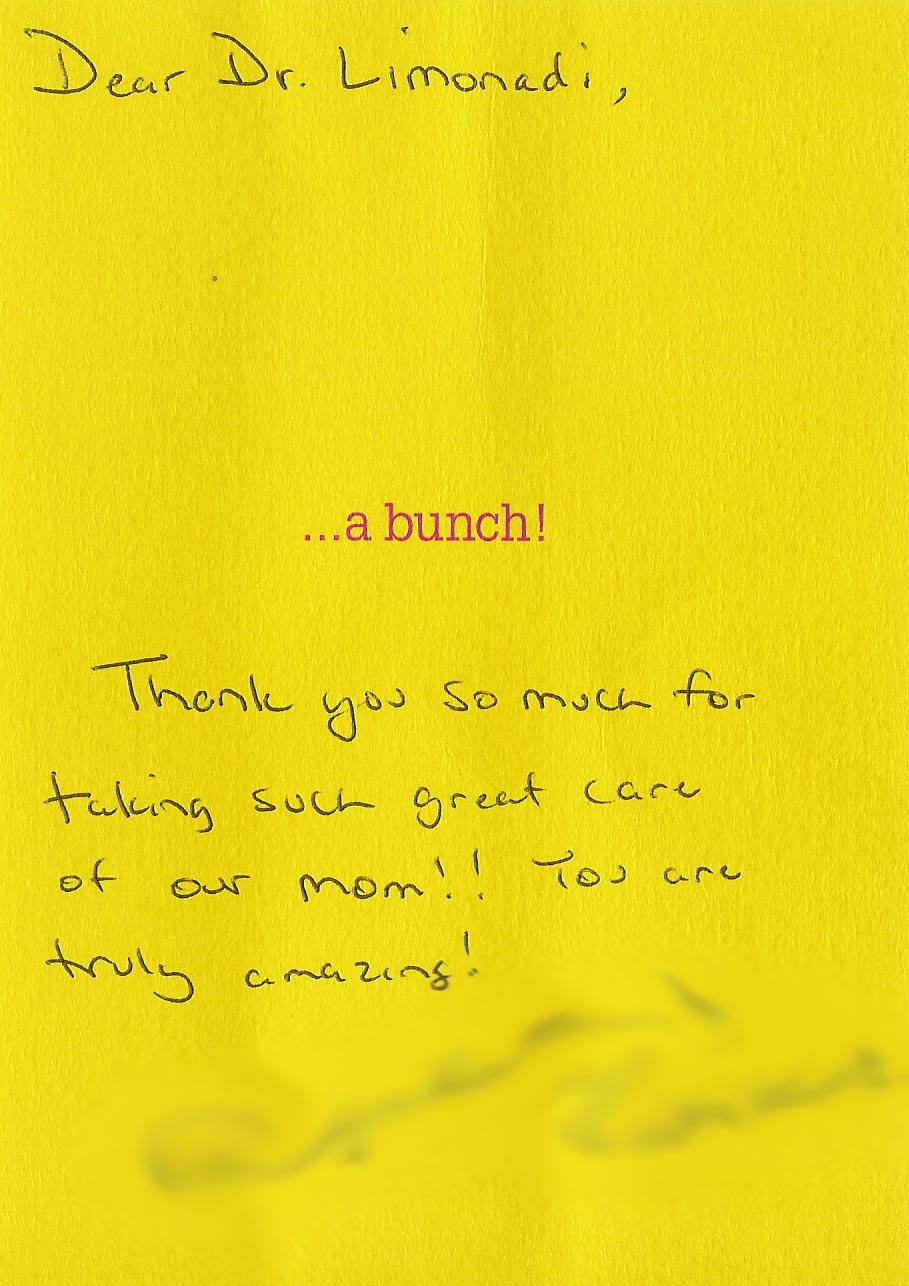 Dear Dr. Limonadi,
...a bunch!
Thank you so much for
taking such great care
of our mom!! You are
truly amazing!